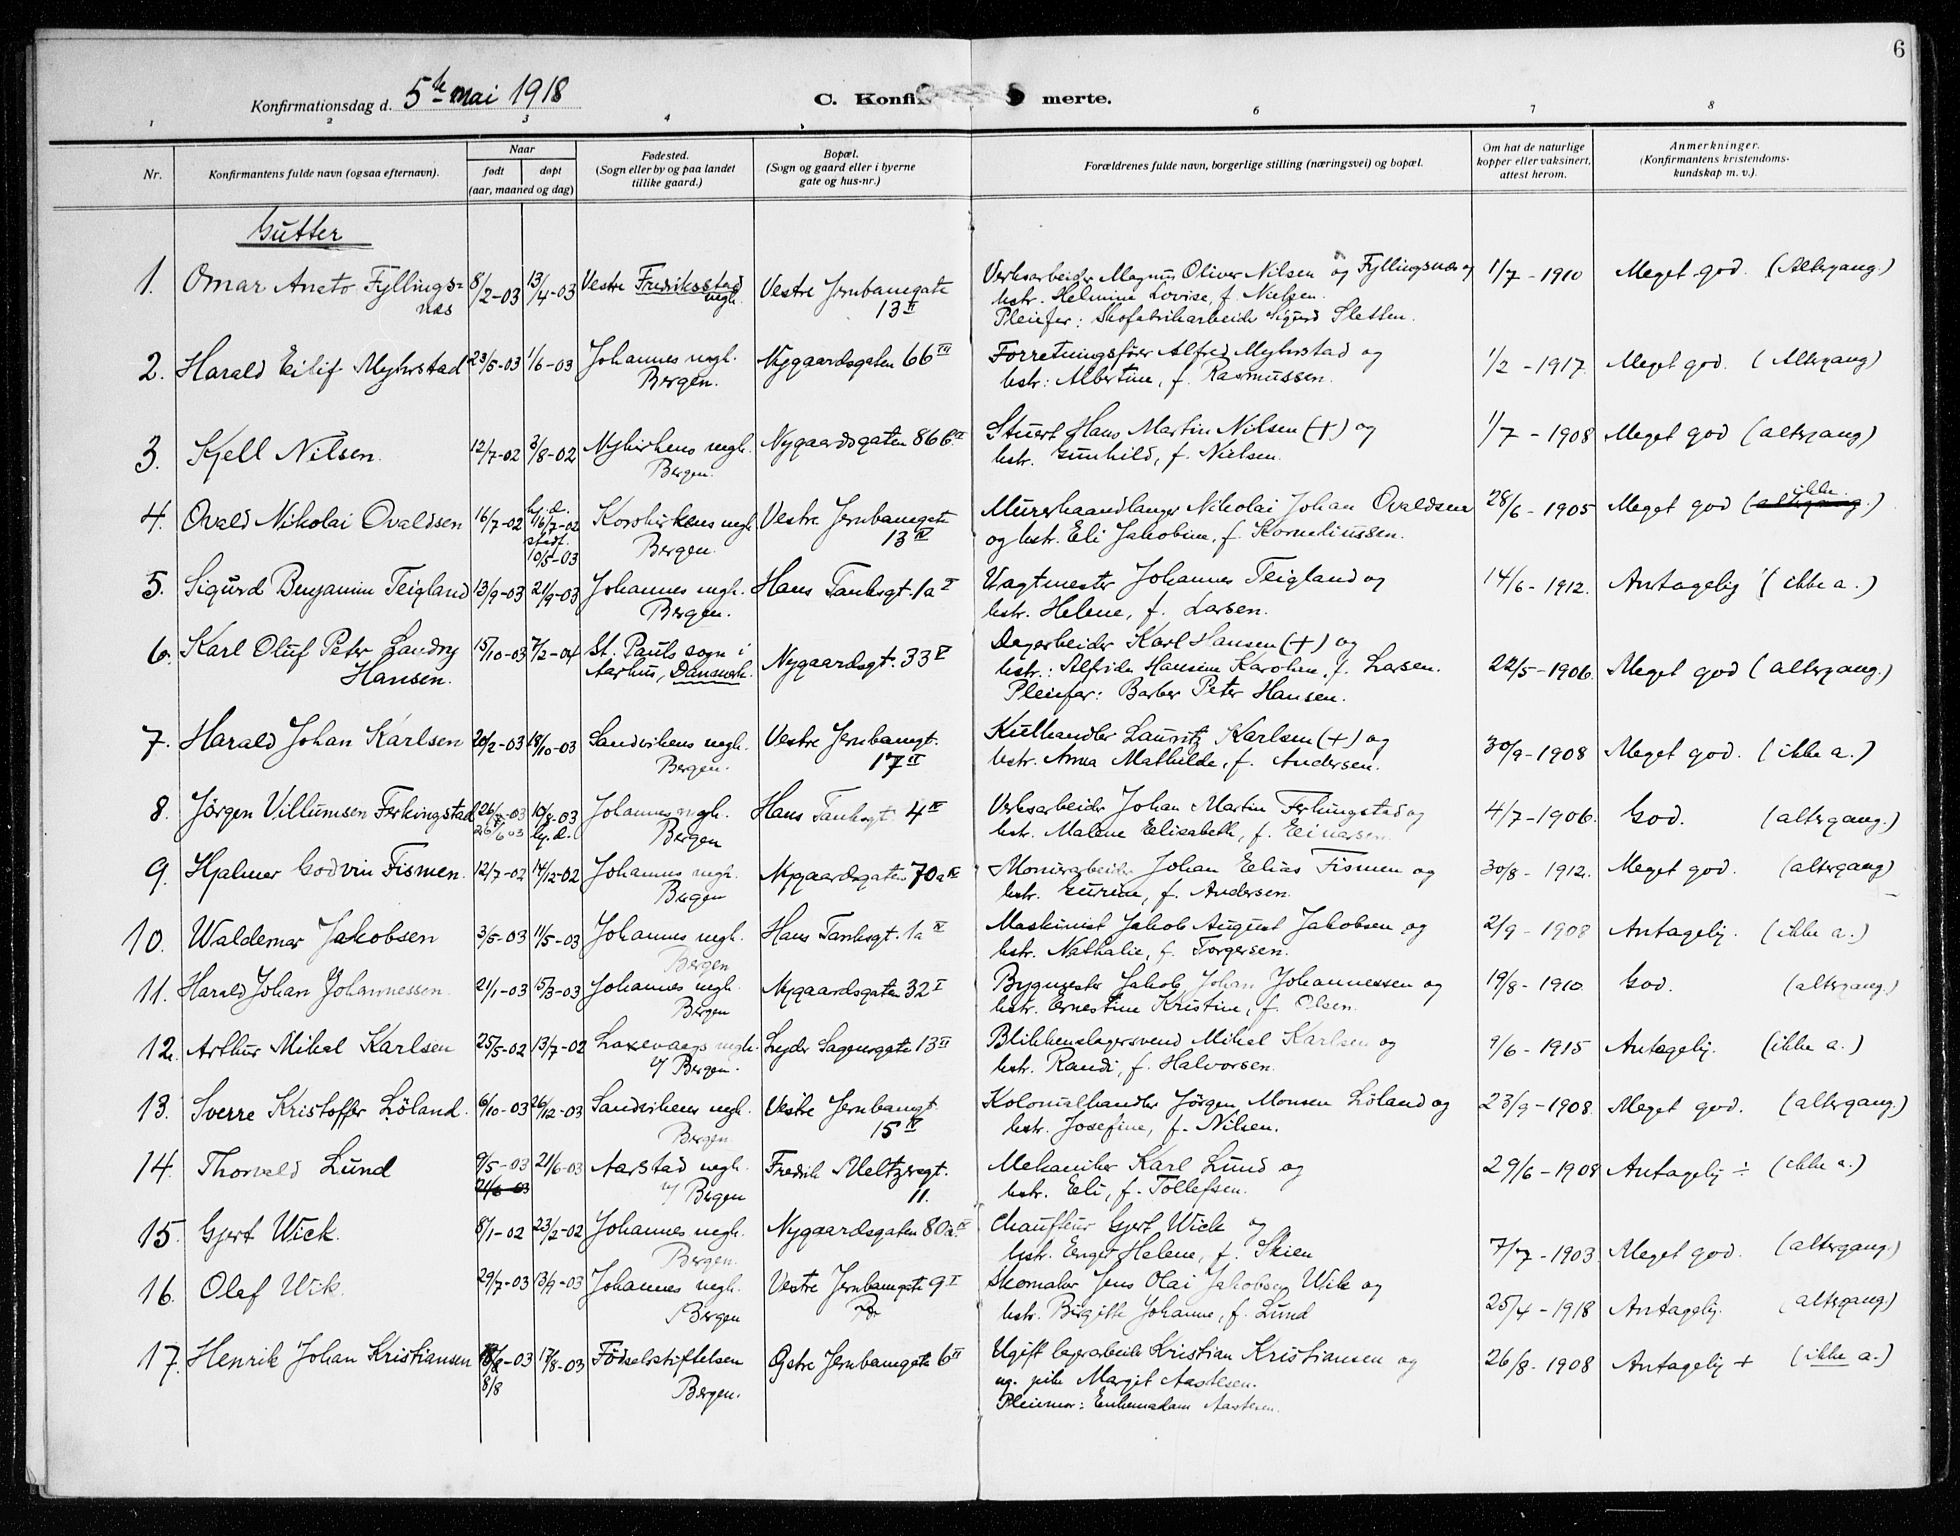 6
Konfirmationsdag d. 5te mai 1918
C. Konfir merte.
1 2 3 4 6 7 8
Nr. Konfirmantens fulde navn (ogsaa efternavn). Naar født døpt (aar, maaned og dag) Fødested. (Sogn eller by og paa landet tillike gaard.) Bopæl. (Sogn og gaard eller i byerne gate og hus-nr.) Forældrenes fulde navn, borgerlige stilling (næringsvei) og bopæl. Om hat de naturlige kopper eller vaksinert, attest herom. Anmerkninger. (Konfirmantens kristendoms-kundskap m. v.).
Gutter
1. Omar Ansto Fyllings= 8/2-03 13/4-03 Vestre Fredriksstad Vestre Jernbanegate Verksarbeider Magnus Oliver Nilsen og Fyllingsnæs og 1/7-1910 Meget god. (Altergang.)
næs megh. 13 II hstr. Helmine Lovise, f. Nielsen.
Pleiefar: Skofabrikarbeide Sigurd Sletten.
2. Harald Eilif Myhrstad 23/5-03 1/6-03 Johannes megh. Nygaardsgaten 66 III Forretningsfører Alfred Myhrstad og 1/2-1917. Meget god. (Altergang)
Bergen. hstr: Albertine, f. Rasmussen.
3. Kjell Nilsen. 12/7-02 3/8-02 Nykirkens megh. Nygaardsgaten 86 Stuert Hans Martin Nilsen (+) og 1/7-1908 Meget god (altergang)
Bergen. hstr. Gunhild, f. Nielsen.
4. Ovald Nikolai Ovaldsen 16/7-02 hj.d. 16/7-02 Korskirkens megh Vestre Jernbanegate Murerhaandlanger Nikolai Johan Ovaldsen 28/6-1905 Meget god (altergang.) ikke
stadf. 10/5-03 Bergen. 13 IV og hstr. Eli Jakobine, f. Korneliussen.
5. Sigurd Benjamin Teigland 13/9-03 21/9-03 Johannes megh. Hans Tanksgt. 1a I Vagtmester Johannes Teigland og 14/6-1912. Antagelig (ikke a.)
Bergen. hstr. Helene, f. Larsen.
6. Karl Oluf Peter Landry 15/10-03 7/2-04 St. Pauls sogn i Nygaardsgt. 33 V Dagarbeider Karl Hansen (+) og 22/5-1906. Meget god (altergang.)
Hansen. Aarhus, Danmark. hstr.: Alfride Hansine Karoline, f. Larsen.
Pleiefar: Barber Peter Hansen.
7. Harald Johan Karlsen 20/2-03 18/10-03 Sandvikens megh. Vestre Jernbanegt. Kulhandler Lauritz Karlsen (+) og 30/9-1908 Meget god. (ikke a.)
Bergen. 17 II hstr. Anna Mathilde, f. Andersen.
8. Jørgen Villumsen Ferkingstad 26/6 03 10/8-03 Johannes megh. Hans Tanksgt. 4 IV Verksarbeider Johan Martin Ferkingstad og 4/7-1906. God. (altergang.)
hj.d. Bergen hstr. Malene Elisabeth, f. Einarsen
9. Hjalmer Godvin Fismen. 12/7-02 14/12-02 Johannes megh. Nygaardsgaten 70a Murerarbeider Johan Elias Fismen og 30/8-1912. Meget god. (altergang)
Bergen hstr. Gurine, f. Andersen.
10. Waldemar Jakobsen 3/5-03 11/5-03 Johannes megh. Hans Tanksgt. 1a IV Maskinist Jakob August Jakobsen og 2/9-1908 Antagelig. (ikke a.)
Bergen hstr. Nathalie, f. Torgersen.
11. Harald Johan Johannessen 21/1-03 15/3-03 Johannes megh. Nygaardsgaten 32 I Bygmester Jakob Johan Johannessen og 19/8-1910. God. (altergang.)
Bergen hstr. Ernestine Kristine, f. Olsen.
12. Arthur Mikal Karlsen 25/5-02 13/7-02 Laxevaags megh. Lyder Sagensgate 13 III Blikkenslagersvend Mikal Karlsen og 9/6-1915 Antagelig. (ikke a.)
v/ Bergen. hstr. Randi, f. Halvorsen.
13. Sverre Kristoffer Löland. 6/10-03 26/12-03 Sandvikens megh. Vestre Jernbanegt. Kolonialhandler Jørgen Monsen Löland og 23/9-1908. Meget god. (altergang.)
Bergen. 15 IV hstr. Josefine, f. Nilsen.
14. Thorvald Lund 9/5-03 21/6-03 Aarstad megh. Fredrik Meltzersgt. Mekaniker Karl Lund og 29/6-1908 Antagelig ÷ (ikke a.)
21/6-03 v/ Bergen 11. hstr. Eli, f. Tollefsen.
15. Gjert Wick. 8/1-02 23/2-02 Johannes megh. Nygaardsgaten 80a Chauffeur Gjert Wick og 7/7-1903. Meget god. (altergang.)
Bergen. hstr. Inger Helene, f. Skien
16. Olaf Wik. 29/7-03 13/9-03 Johannes megh. Vestre Jernbanegate 9 I Skomaker Jens Olai Jakobsen Wik og 25/4-1918 Antagelig. (altergang.)
Bergen hstr. Birgitte Johanne, f. Lund
17. Henrik Johan Kristiansen 8/8-03 17/8-03 Fødselsstiftelsen Østre Jernbanegate 6 II Ugift lagerarbeide Kristian Kristiansen og 26/8-1908 Antagelig + (ikke a.)
8/8 Bergen. ug. pike Margit Aastesen.
Pleiemor: Enkemadam Aastesen.